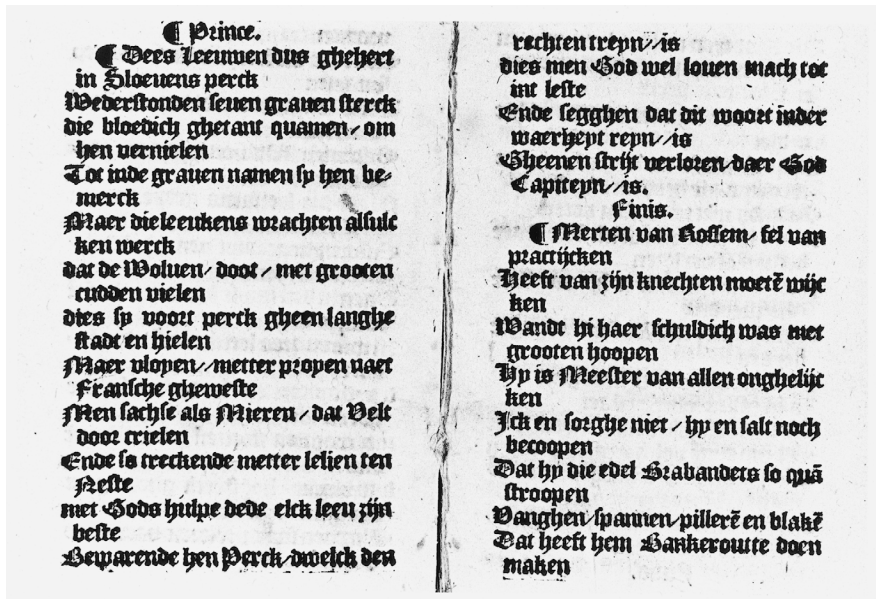 ¶ Prince.
¶ Dees Leeuwen dus ghehert
in Sloevens perck
Wederstonden seuen grauen sterck
die bloedich ghetant quamen / om
hen vernielen
Tot inde grauen namen sy hen be-
merck
Maer die leeukens wrachten alsulc
ken werck
dat de Woluen / doot / met grooten
cudden vielen
dies sy voort perck gheen langhe
stadt en hielen
Maer vlopen / metter propen naet
Fransche gheweste
Men sachse als Mieren / dat Velt
door crielen
Ende so treckende metter lelien ten
Neste
met Gods hulpe dede elck leeu zijn
beste
Bewarende hen Perck / dwelck den
rechten treyn // is
dies men God wel louen mach tot
int leste
Ende segghen dat dit woort inder
waerheyt reyn // is
Gheenen strijt verloren / daer God
Capiteyn // is.
Finis.
¶ Merten van Rossem / fel van
practijcken
Heeft van zijn knechten moetẽ wijc
ken
Wandt hi haer schuldich was met
grooten hoopen
Hy is Meester van allen onghelijc
ken
Ick en sorghe niet / hy en salt noch
becoopen
Dat hy die edel Brabanders so quã
stroopen
Vanghen / spannen / pillerẽ en blakẽ
Dat heeft hem Bankeroutte doen
maken